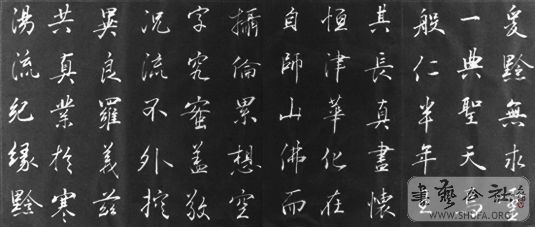 爰黔無求
一典聖天
般仁半年
其長真書懷
恒津華化在
自師山佛而
攝倫累想空
字究蜜蓋敬
況流不外控
異良羅義茲
共真業於寒
湯流紀緣黔
書藝公社
WWW.SHUFA.ORG